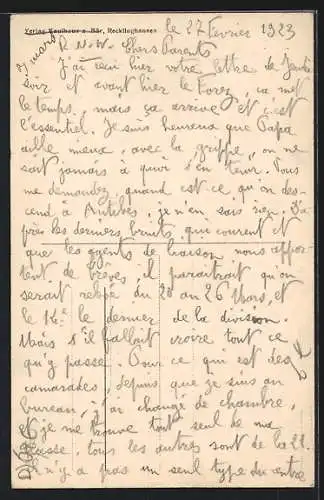 Verlag Kaufhaus z. Bär, Recklinghausen
le 27 Fevrier 1923
Chers Parents
J'ai reçu hier votre lettre de Jeudi
soir et avant hier le Forez, ça met
le temps, mais ça arrive et c'est
l'essentiel. Je suis heureux que Papa
aille mieux, avec la grippe, on ne
sait jamais à quoi s'en tenir. Vous
me demandez quand est ce qu'on des-
cend à Antibes, je n'en sais rien. D'a-
près les derniers bruits qui courent et
que les agents de liaison nous appor-
tent de Brèves, il paraîtrait qu'on
serait relevé du 20 au 26 Mars, et
le le dernier de la division.
Mais s'il fallait croire tout ce
qu'y passe. Pour ce qui est des
camarades, depuis que je suis au
bureau, j'ai changé de chambre,
et je me trouve tout seul de ma
classe, tous les autres sont de la 22.
Il n'y a pas un seul type du centre